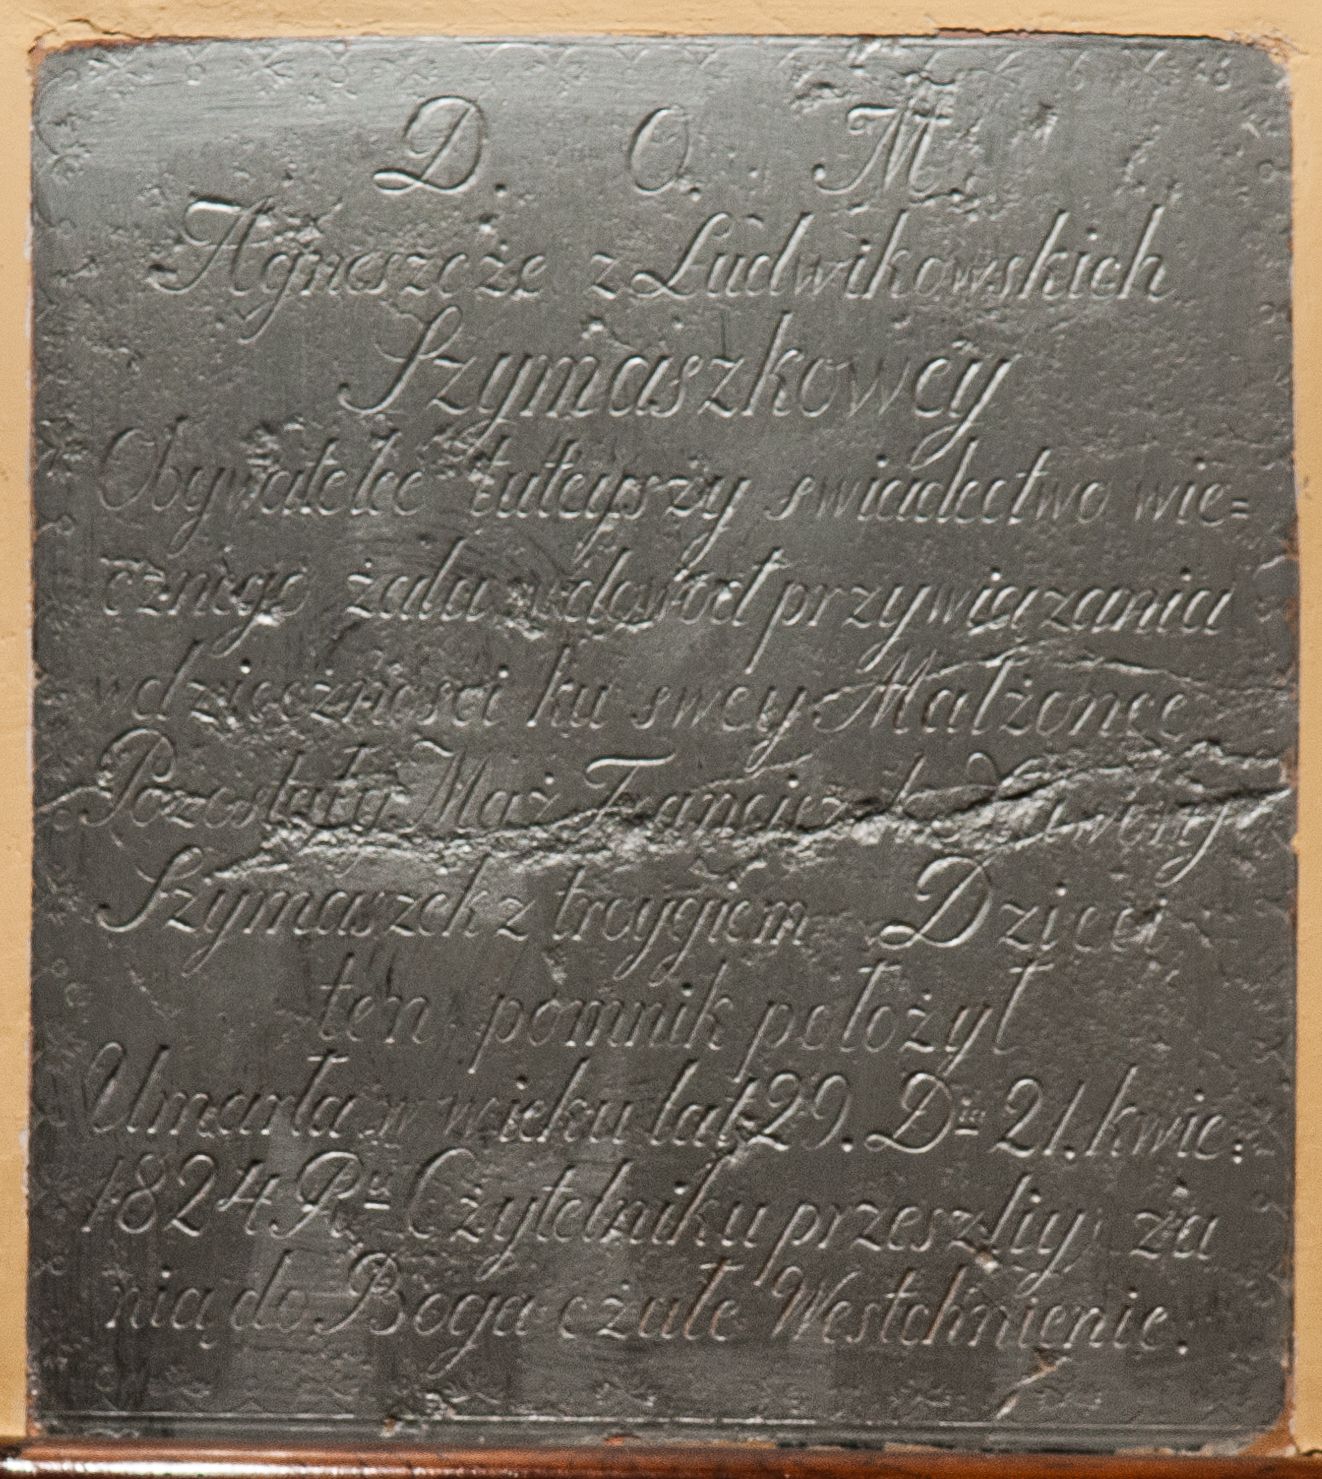 D. O. M.
Agneszcże z Ludwikowskich
Szymaszkowey
Obywatelce tuteyszy swiadectwo wie=
cznego żalu w dowod przywiązania
wdzięczności ku swey Małżonce
Pozostały Mąż Franciszek
Szymaszek z troygiem Dzieci
ten pomnik położył
Umarła w wieku lat 29. Dia 21. kwie:
1824 Ru Czytelniku przeszliy za
nią do Boga czułe Westchnienie.